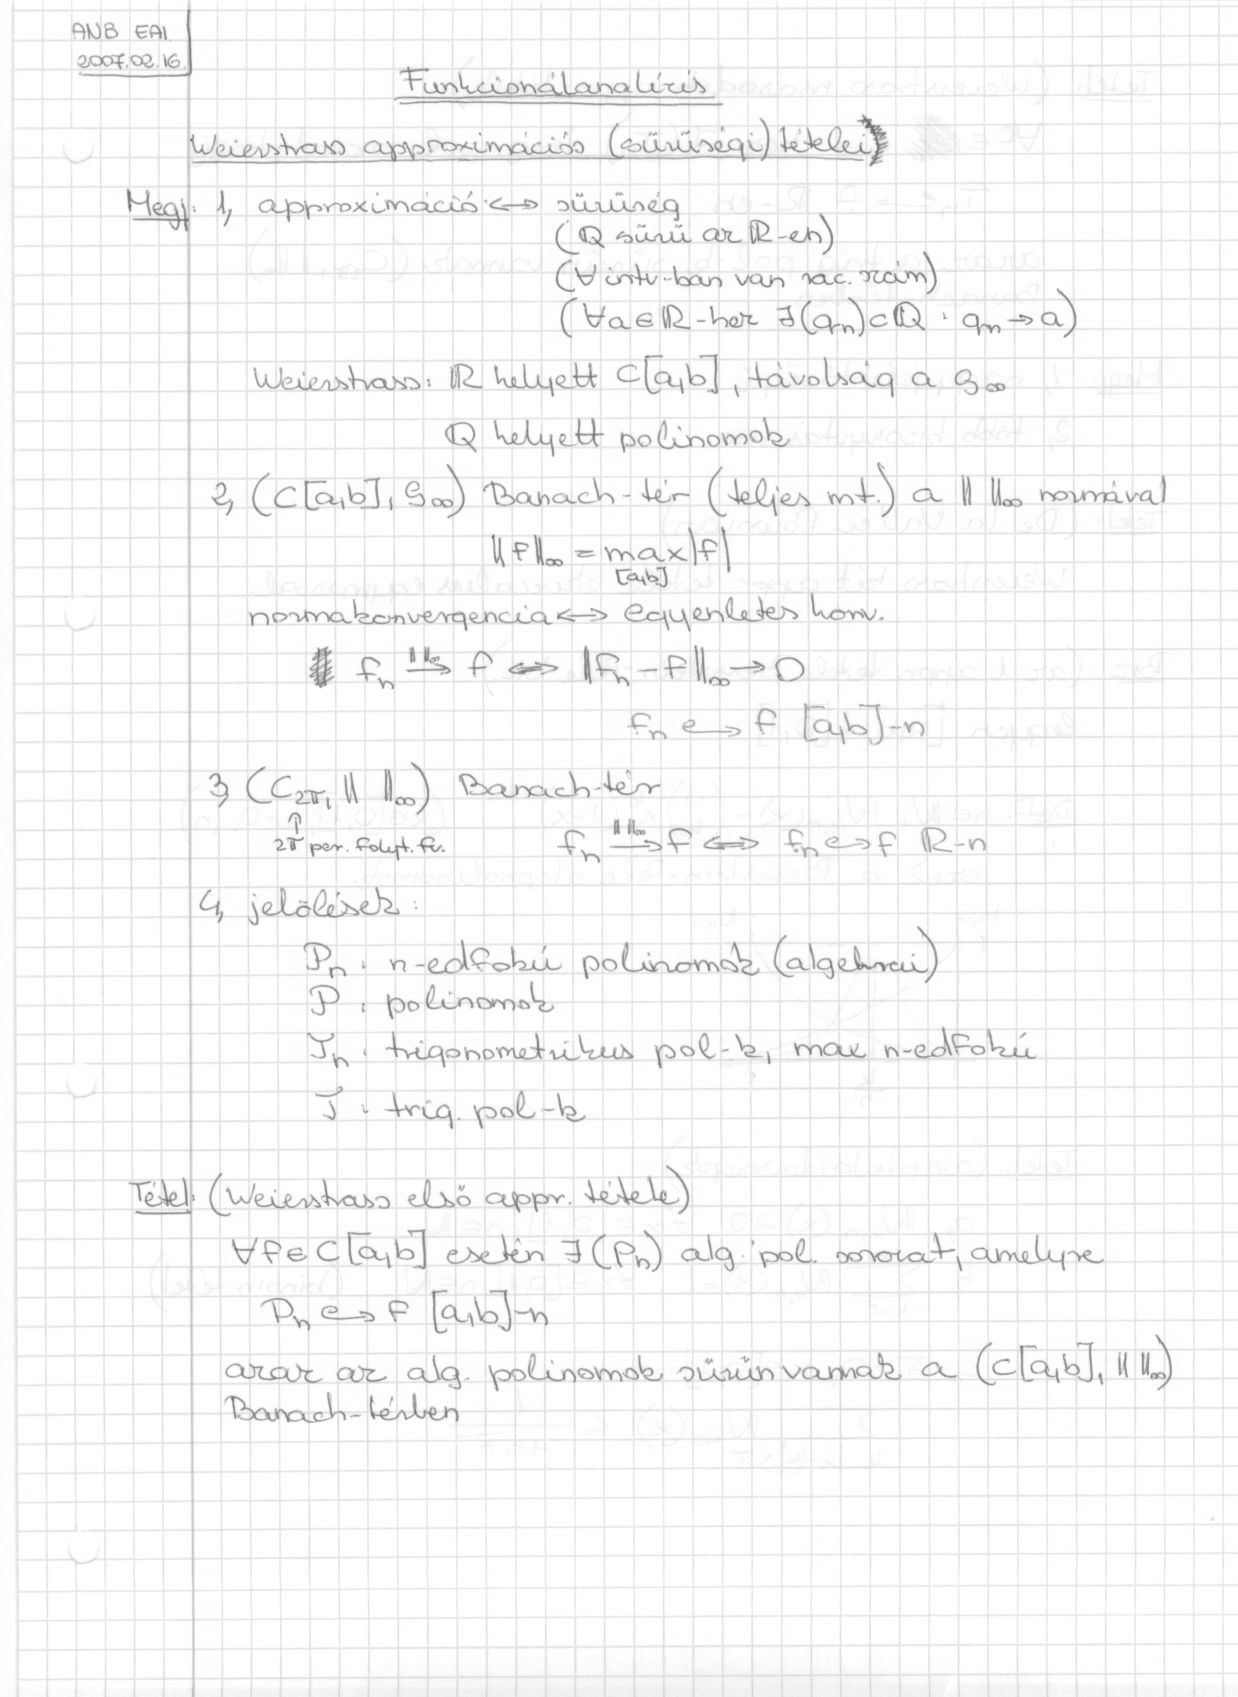 ANB EA1
2007.02.16.
Funkcionálanalízis
Weierstrass approximációs (sűrűségi) tételei
Megj: 1, approximáció ↔ sűrűség
(ℚ sűrű az ℝ-en)
(∀ intv-ban van rac. szám)
(∀a∈ℝ-hez ∃(qₙ)⊂ℚ : qₙ → a)
Weierstrass: ℝ helyett C[a,b], távolság a ϱ∞
ℚ helyett polinomok
2, (C[a,b], ϱ∞) Banach-tér (teljes mt.) a ‖ ‖∞ normával
‖f‖∞ = max|f|
[a,b]
normakonvergencia ↔ egyenletes konv.
fₙ —‖ ‖∞→ f ⇔ ‖fₙ - f‖∞ → 0
fₙ e→ f [a,b]-n
3, (C₂π, ‖ ‖∞) Banach-tér
↑
2π per. folyt. fv. fₙ —‖ ‖∞→ f ⇔ fₙ e→ f ℝ-n
4, jelölések:
Pₙ : n-edfokú polinomok (algebrai)
P : polinomok
Tₙ : trigonometrikus pol-k, max n-edfokú
T : trig. pol-k
Tétel: (Weierstrass első appr. tétele)
∀f∈C[a,b] esetén ∃(Pₙ) alg. pol. sorozat, amelyre
Pₙ e→ f [a,b]-n
azaz az alg. polinomok sűrűn vannak a (C[a,b], ‖ ‖∞)
Banach-térben